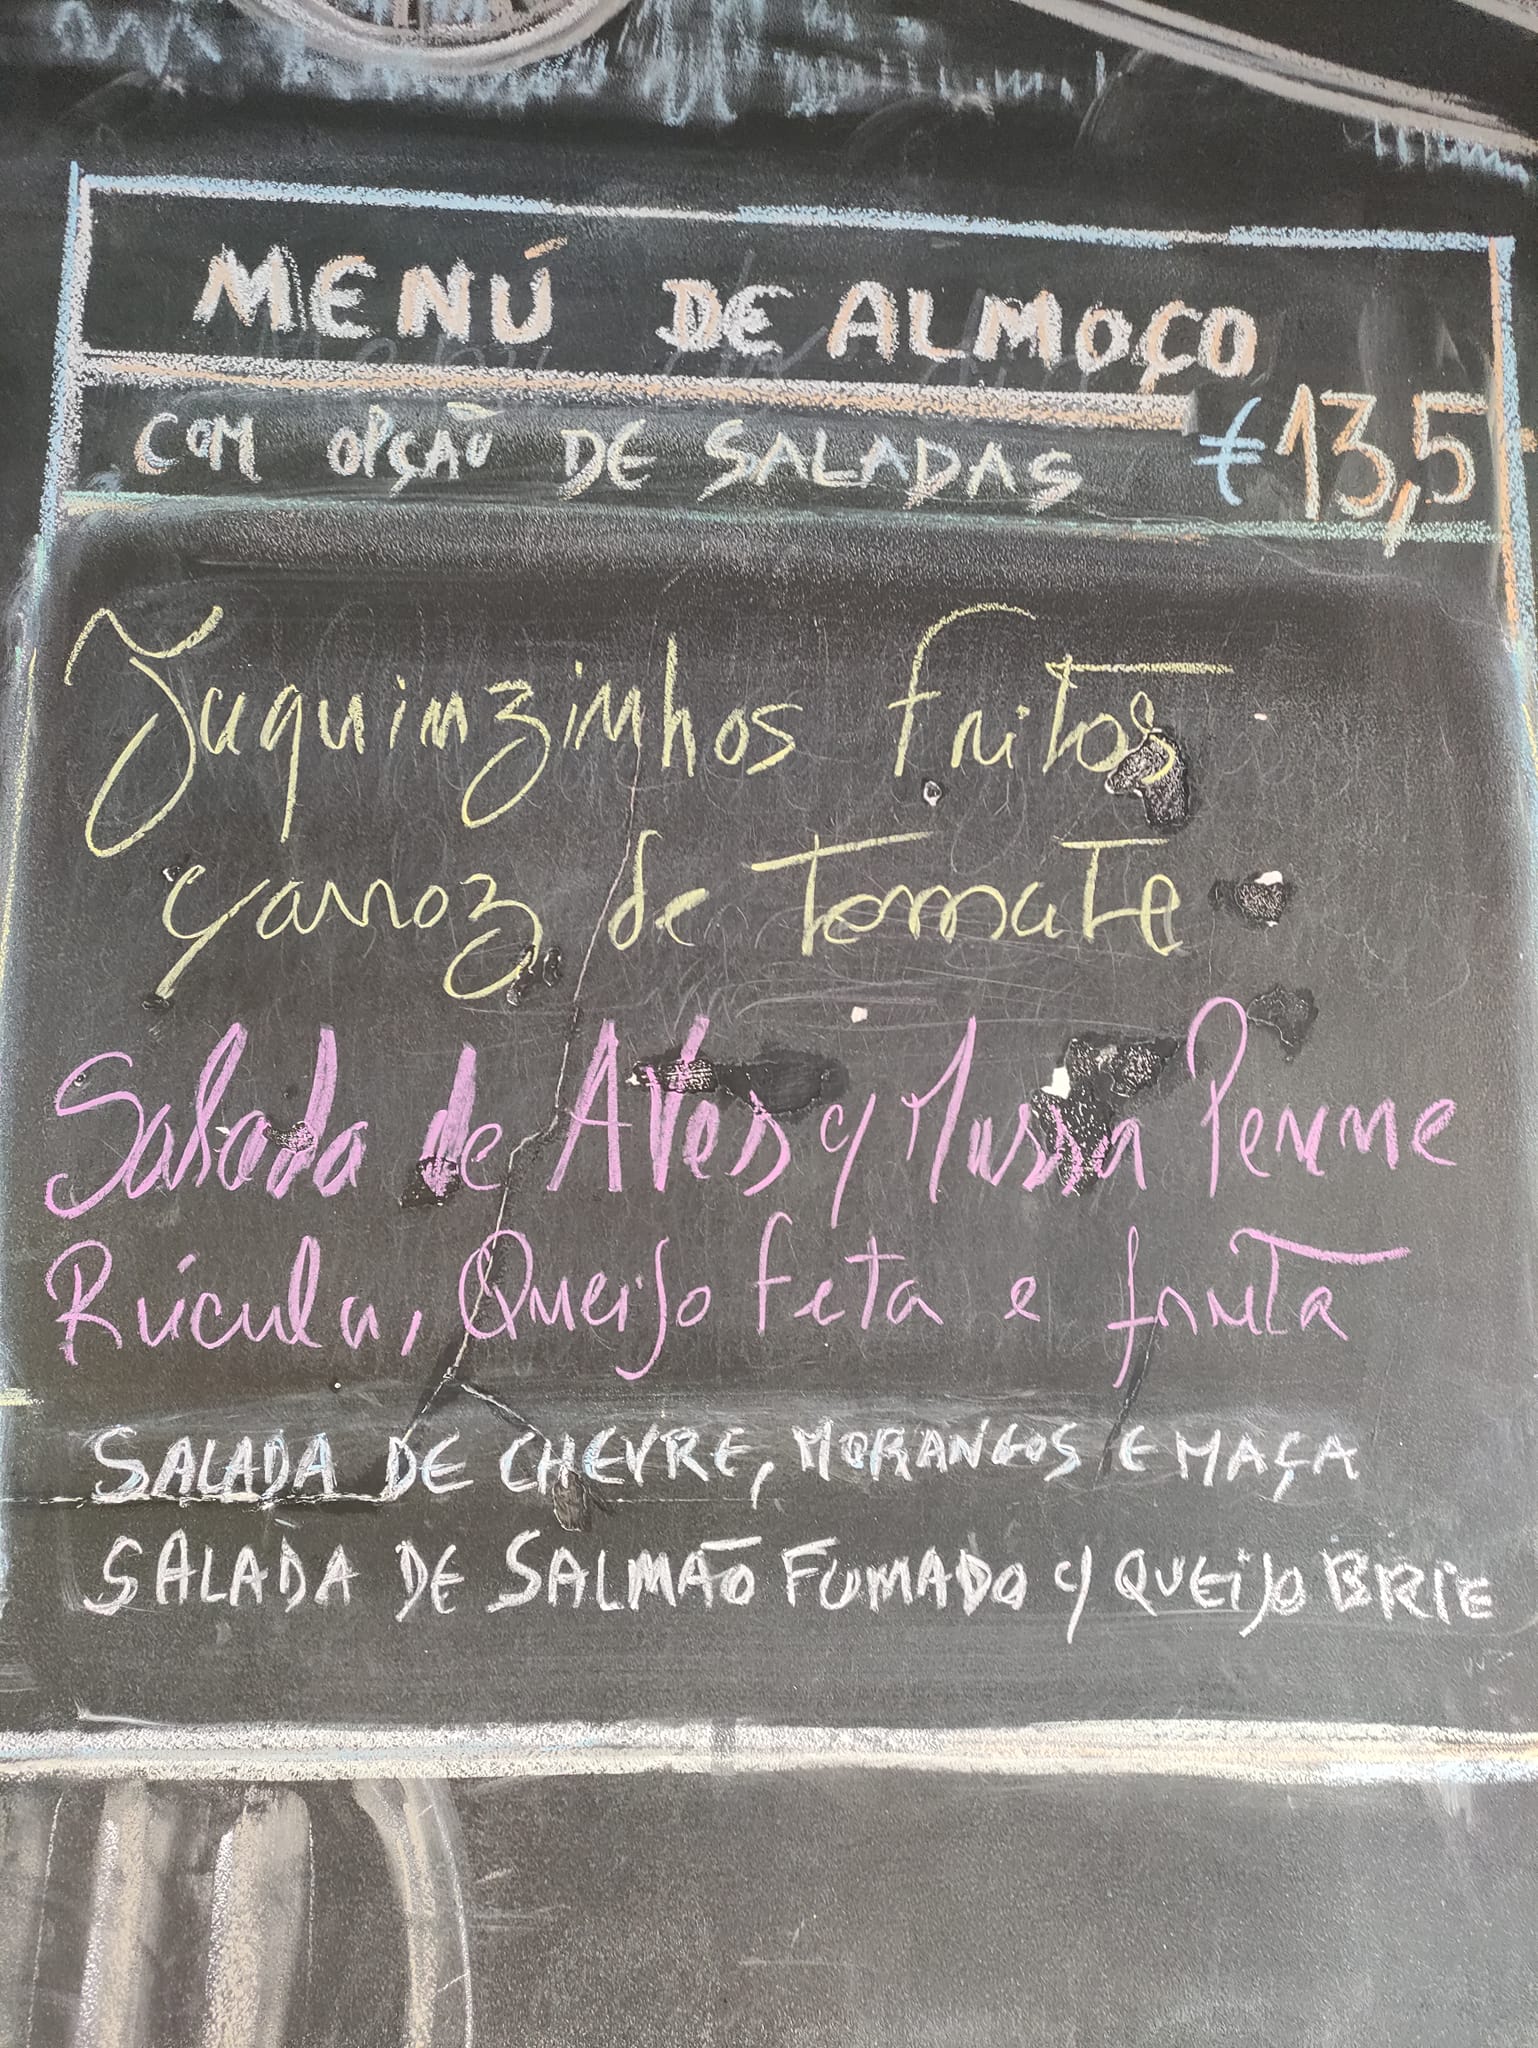 MENÚ DE ALMOÇO
COM OPÇÃO DE SALADAS €13,5
Jaquinzinhos fritos
ç/arroz de Tomate
Salada de Aves y Massa Penne
Rúcula, Queijo feta e fruta
SALADA DE CHEVRE, MORANGOS E MAÇA
SALADA DE SALMÃO FUMADO y QUEIJO BRIE